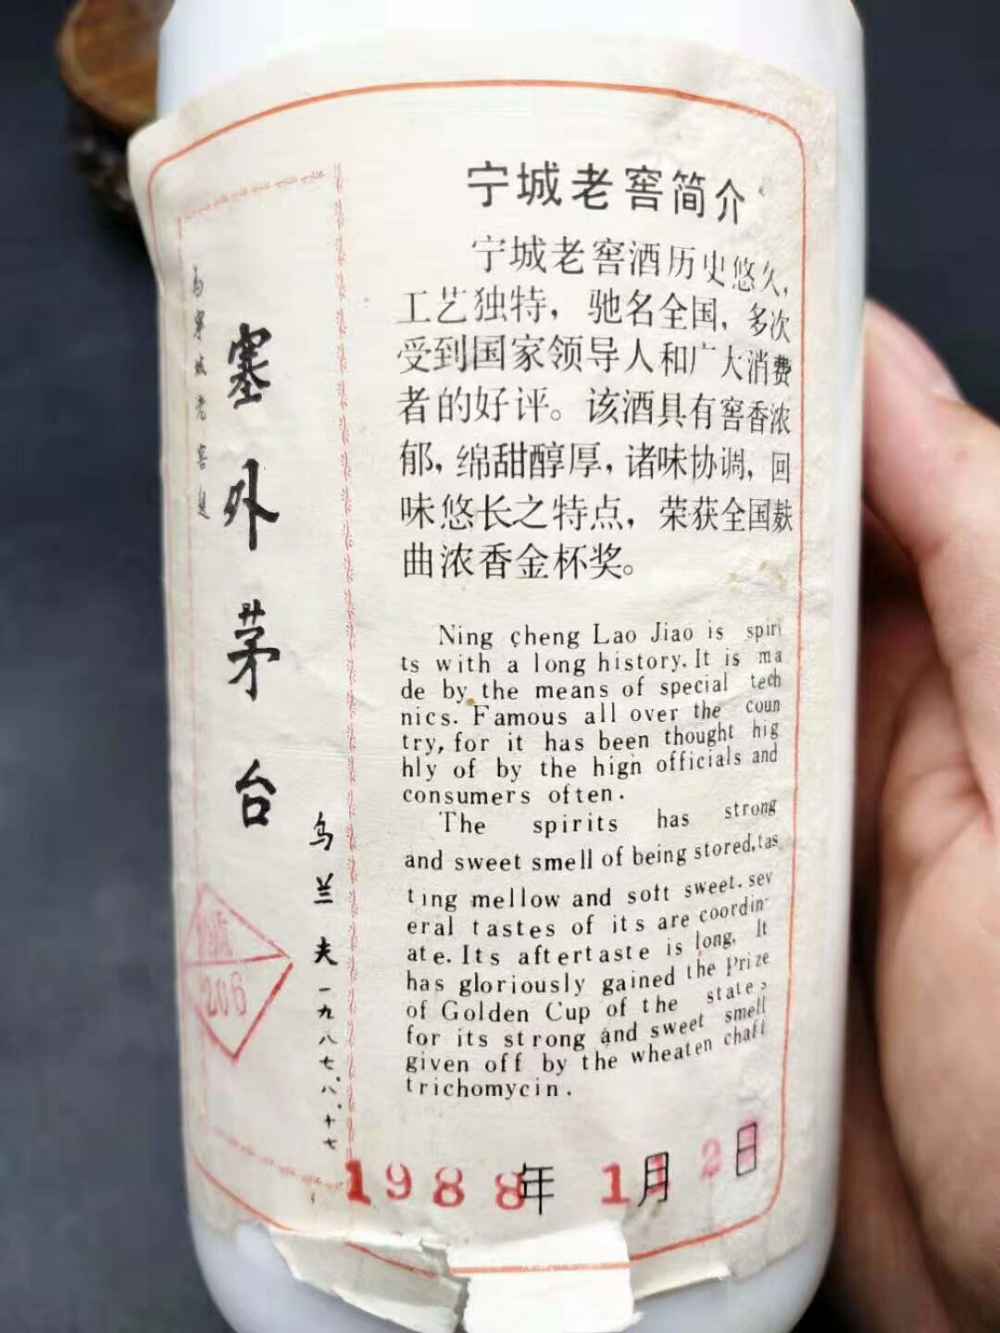 宁城老窖简介
宁城老窖酒历史悠久,
工艺独特，驰名全国，多次
受到国家领导人和广大消费
者的好评。该酒具有窖香浓
郁，绵甜醇厚，诸味协调，回
味悠长之特点，荣获全国麸
曲浓香金杯奖。
Ning cheng Lao Jiao is spiri
ts with a long history. It is ma
de by the means of special tech
nics. Famous all over the coun
try, for it has been thought hig
hly of by the high officials and
consumers often.
The spirits has strong
and sweet smell of being stored, tas
ting mellow and soft sweet. sev
eral tastes of its are coordin-
ate. Its aftertaste is long. It
has gloriously gained the Prize
of Golden Cup of the state,
for its strong and sweet smell
given off by the wheaten chaff
trichomycin.
1988年 1月2日
为宁城老窖题
塞外茅台
乌兰夫一九八七、八、十七
206